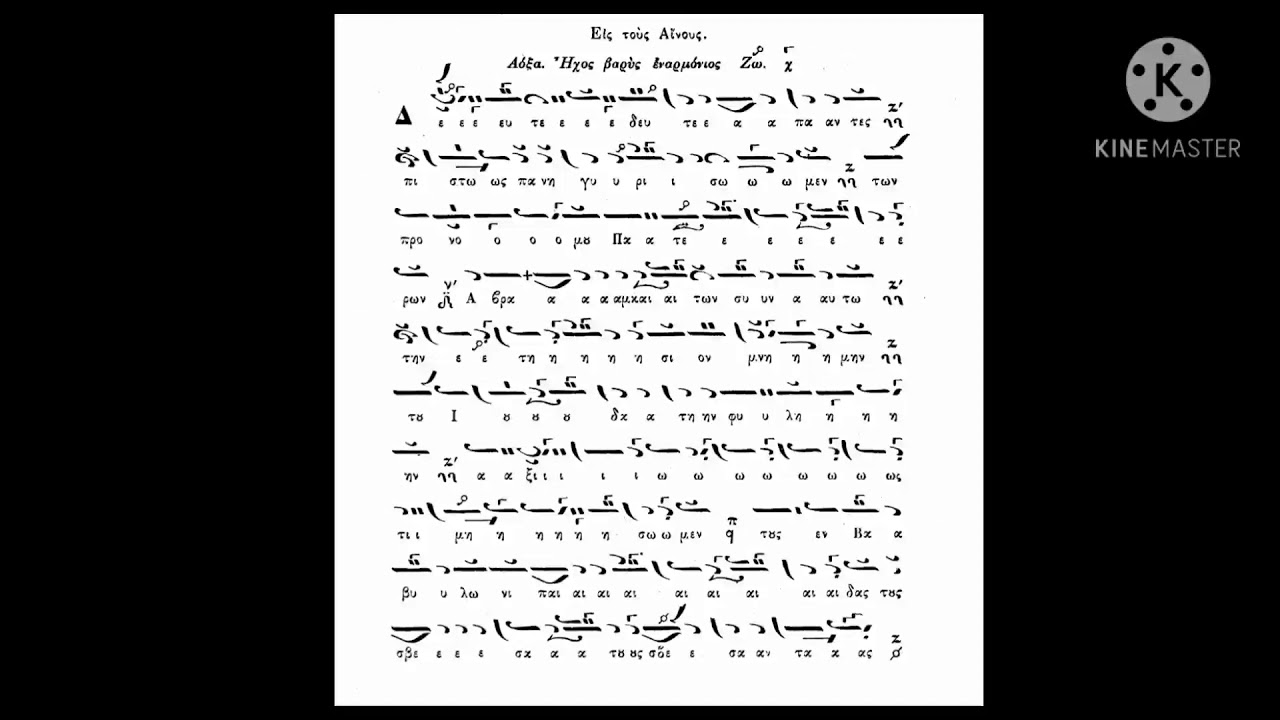 Εἰς τοὺς Αἴνους.
Δόξα. Ἦχος βαρὺς ἐναρμόνιος Ζω.
KINEMASTER
Δ ε ε ε ευ τε ε ε ε δευ τε ε α α πα αν τες
πι στω ως πα νη γυ υ ρι ι σω ω ω μεν των
προ νο ο ο ο μȣ Πα α τε ε ε ε ε ε ε
ρων Α βρα α α α αμ και αι των συ υν α αυ τω
την ε ε τη η η η η σι ον μνη η η μην
τȣ Ι ȣ ȣ ȣ δα α τη ην φυ υ λη η η η
ην α α ξι ι ι ι ι ω ω ω ω ω ω ω ως
τι ι μη η η η η η σω ω μεν τȣς εν Βα α
βυ υ λω νι παι αι αι αι αι αι αι αι αι δας τȣς
σβε ε ε ε σα α α τȣ ȣς σϐε ε σα αν τα α ας